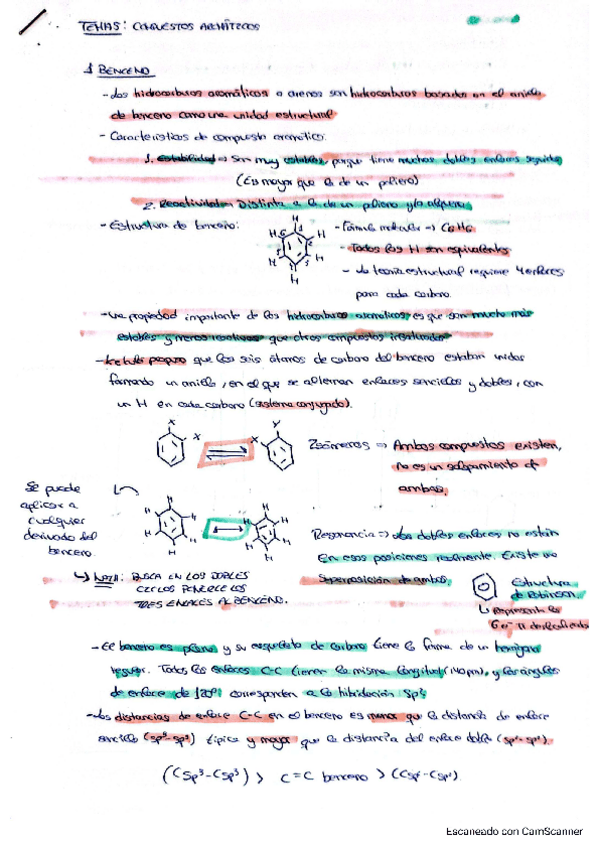 TEMA5: COMPUESTOS AROMÁTICOS
1 BENCENO
- Los hidrocarburos aromáticos o arenos son hidrocarburos basados en el anillo
de benceno como una unidad estructural
- Características de compuesto aromático:
1. Estabilidad → Son muy estables, porque tiene muchos dobles enlaces seguidos
(Es mayor que la de un polieno)
2. Reactividad → Distinta a la de un polieno y/o alqueno
- Estructura de benceno:
- Fórmula molecular => C6H6
- Todos los H son equivalentes.
- La teoría estructural requiere 4 enlaces
para cada carbono.
- Una propiedad importante de los hidrocarburos aromáticos, es que son mucho más
estables y menos reactivos que otros compuestos insaturados
- Kekulé propuso que los seis átomos de carbono del benceno estaban unidos
formando un anillo, en el que se alternan enlaces sencillos y dobles, con
un H en cada carbono (sistema conjugado).
X X X Y
Isómeros => Ambos compuestos existen,
no es un solapamiento de
ambos.
Se puede
aplicar a
cualquier
derivado del
benceno.
Resonancia => Los dobles enlaces no están
en esas posiciones realmente. Existe una
superposición de ambas.
Estructura
de Robinson.
Representa los
6 e⁻ π deslocalizados
NOTA: BUSCA EN LOS DOBLES
- El benceno es plano y su esqueleto de carbono tiene la forma de un hexágono
regular. Todos los enlaces C-C tienen la misma longitud (140pm), y los ángulos
de enlace de 120º corresponden a la hibridación sp².
- Las distancias de enlace C-C en el benceno es menor que la distancia de enlace
sencillo (sp³-sp³) típica y mayor que la distancia del enlace doble (sp²-sp²).
(Csp³-Csp³) > C=C benceno > (Csp²-Csp²).
Escaneado con CamScanner